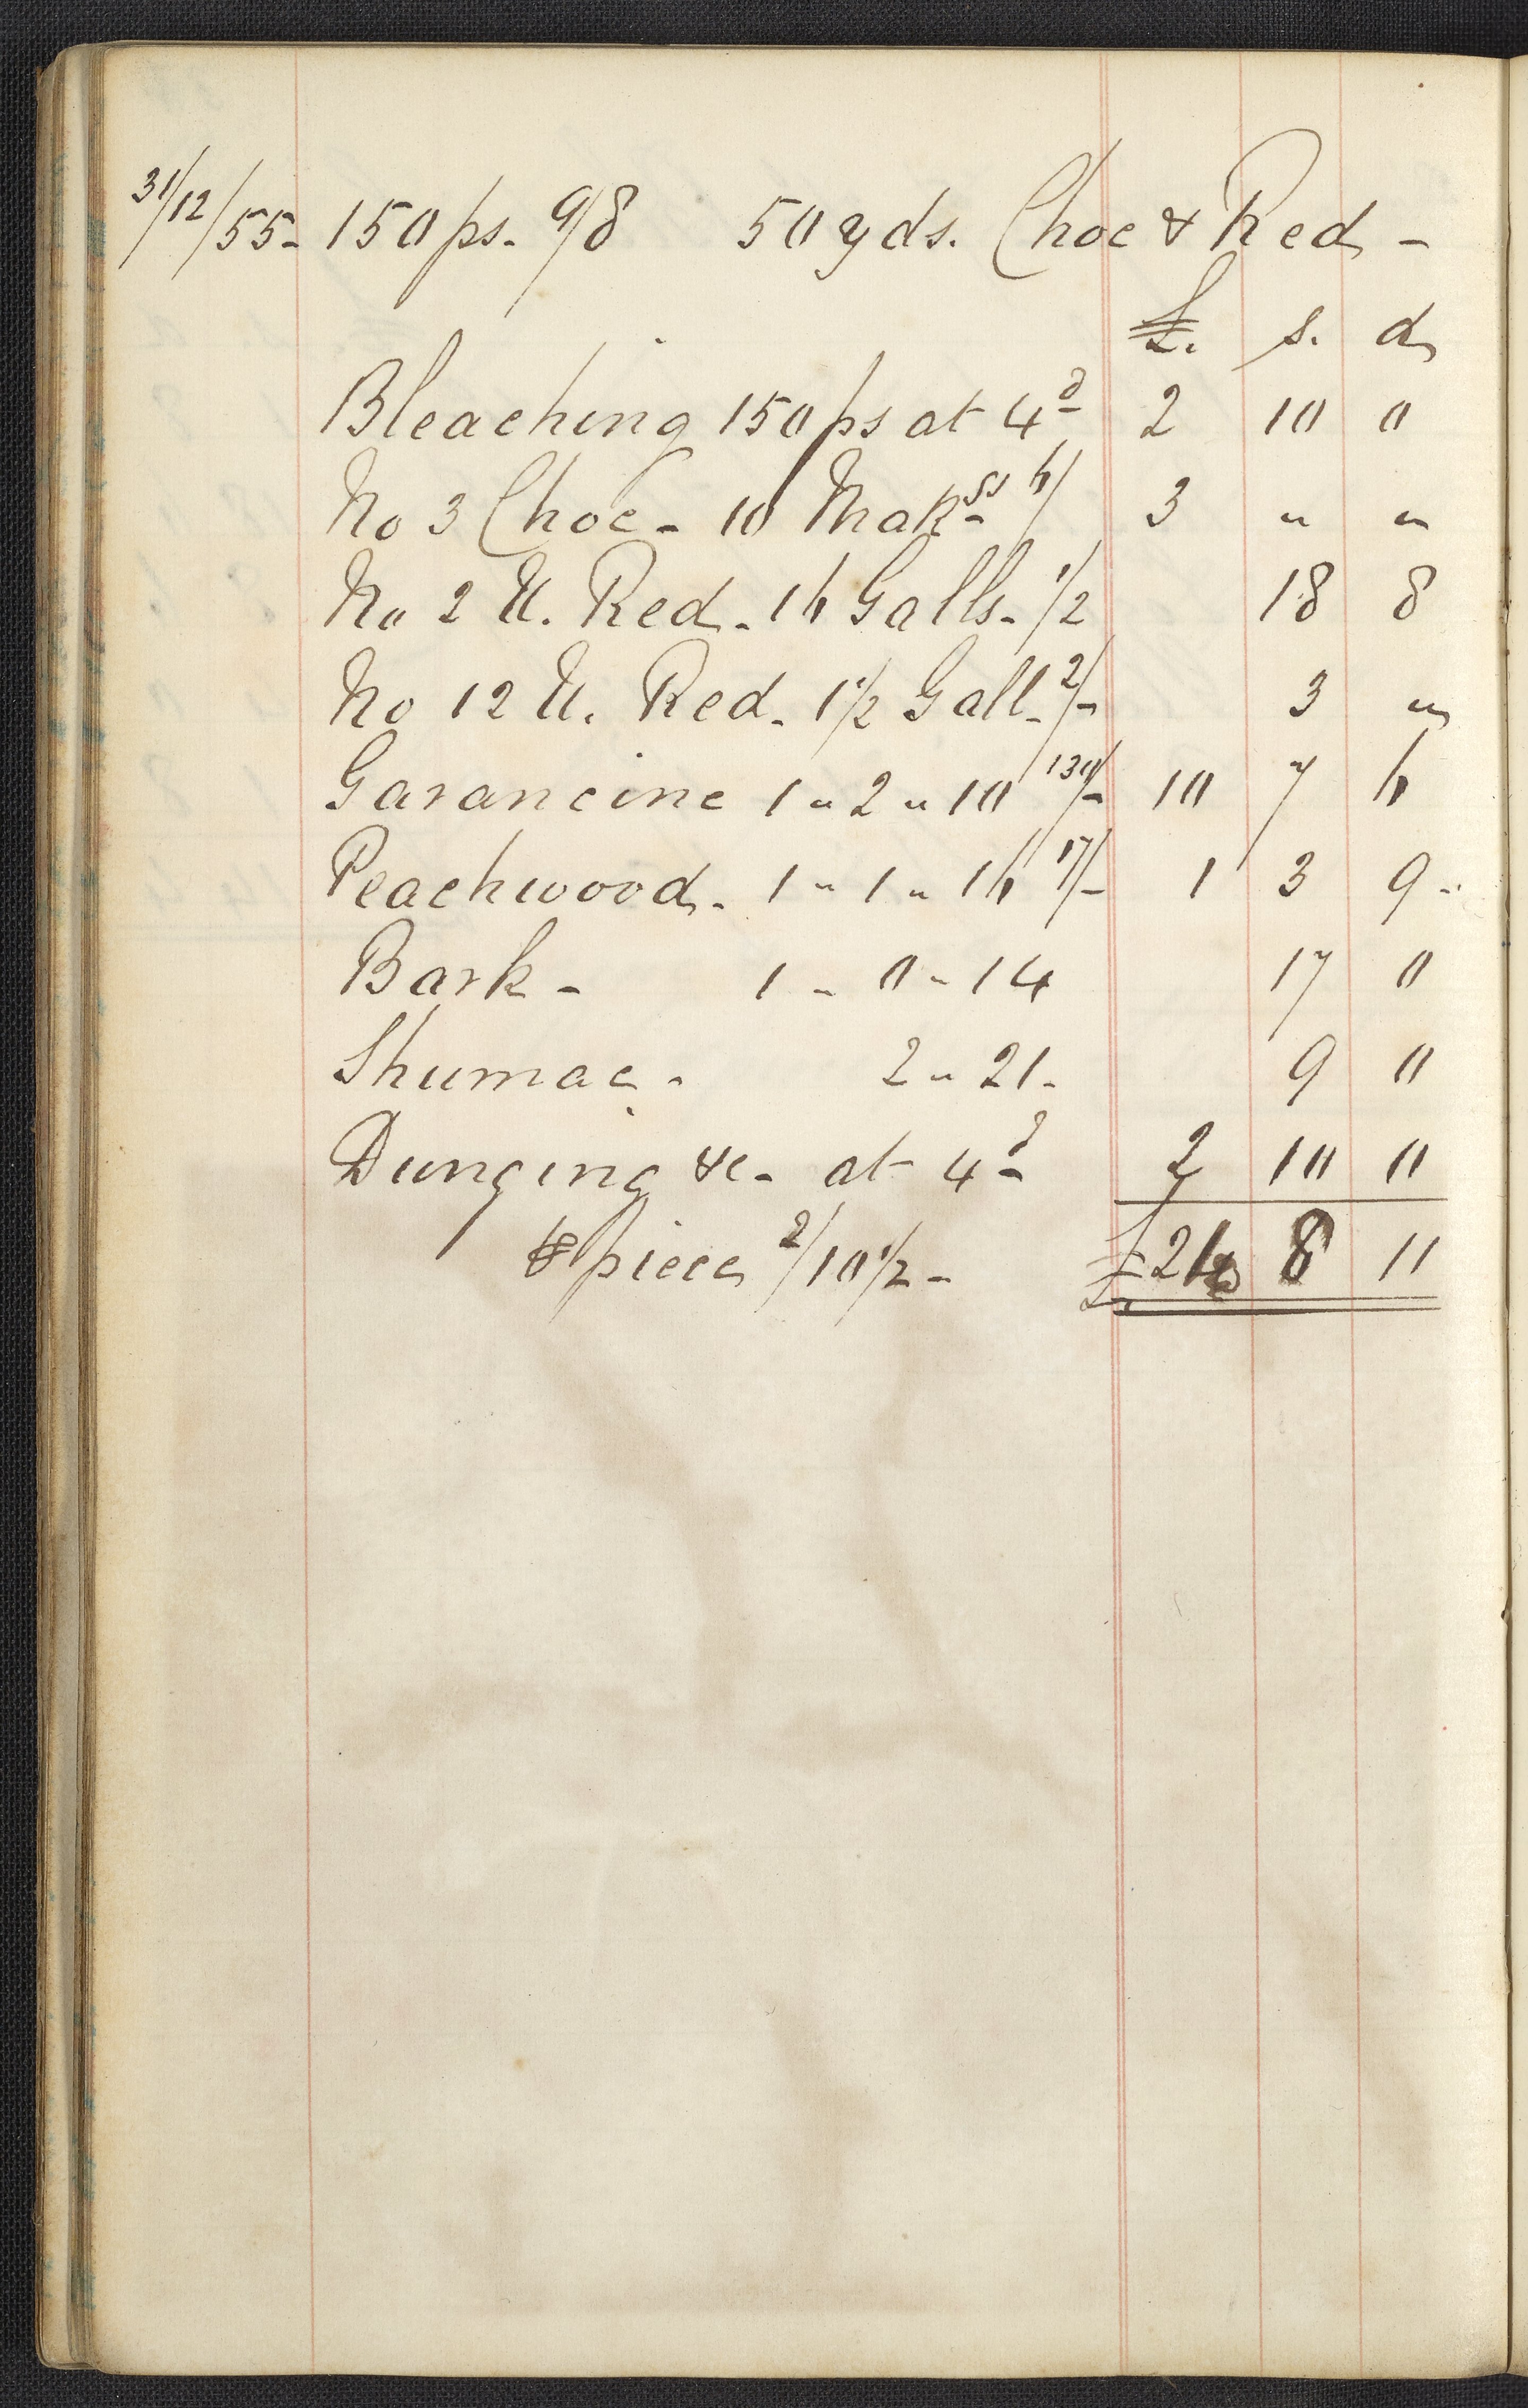 31/12/55- 150 ps. 9/8 50 yds. Choc & Red -
£. s. d
Bleaching 150 ps at 4d 2 10 0
No 3 Choc - 10 6/ 3 " "
No 2 U. Red - 16 Galls - 1/2 18 8
No 12 U. Red - 1 1/2 Gall - 2/- 3 "
Garancine 1 " 2 " 10 130/- 10 7 6
Peachwood - 1 " 1 " 16 17/- 1 3 9 -
Bark - 1 - 0 - 14 17 0
Shumac - 2 " 21 - 9 0
Dunging &c - at 4d 2 10 0
⅌ piece 2/10 1/2 - £ 21 8 11